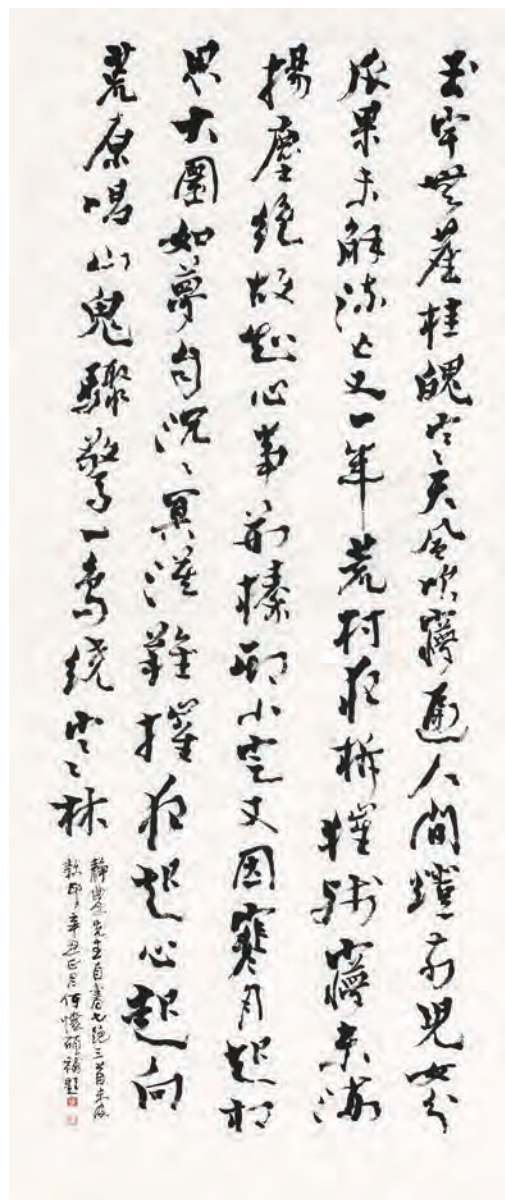 玉宇無塵桂魄寒天風吹夢遍人間燈前兒女分
瓜果未解流亡又一年荒村夜柝摧殘夢東海
揚塵絕故知心事荊榛那小定又因寒月起相
思大圜如夢自沉沉冥漠難摧夜起心起向
荒原唱山鬼驟驚一鳥繞寒林
靜農先生自書七絕三首未及
款印辛丑正月何懷碩補題